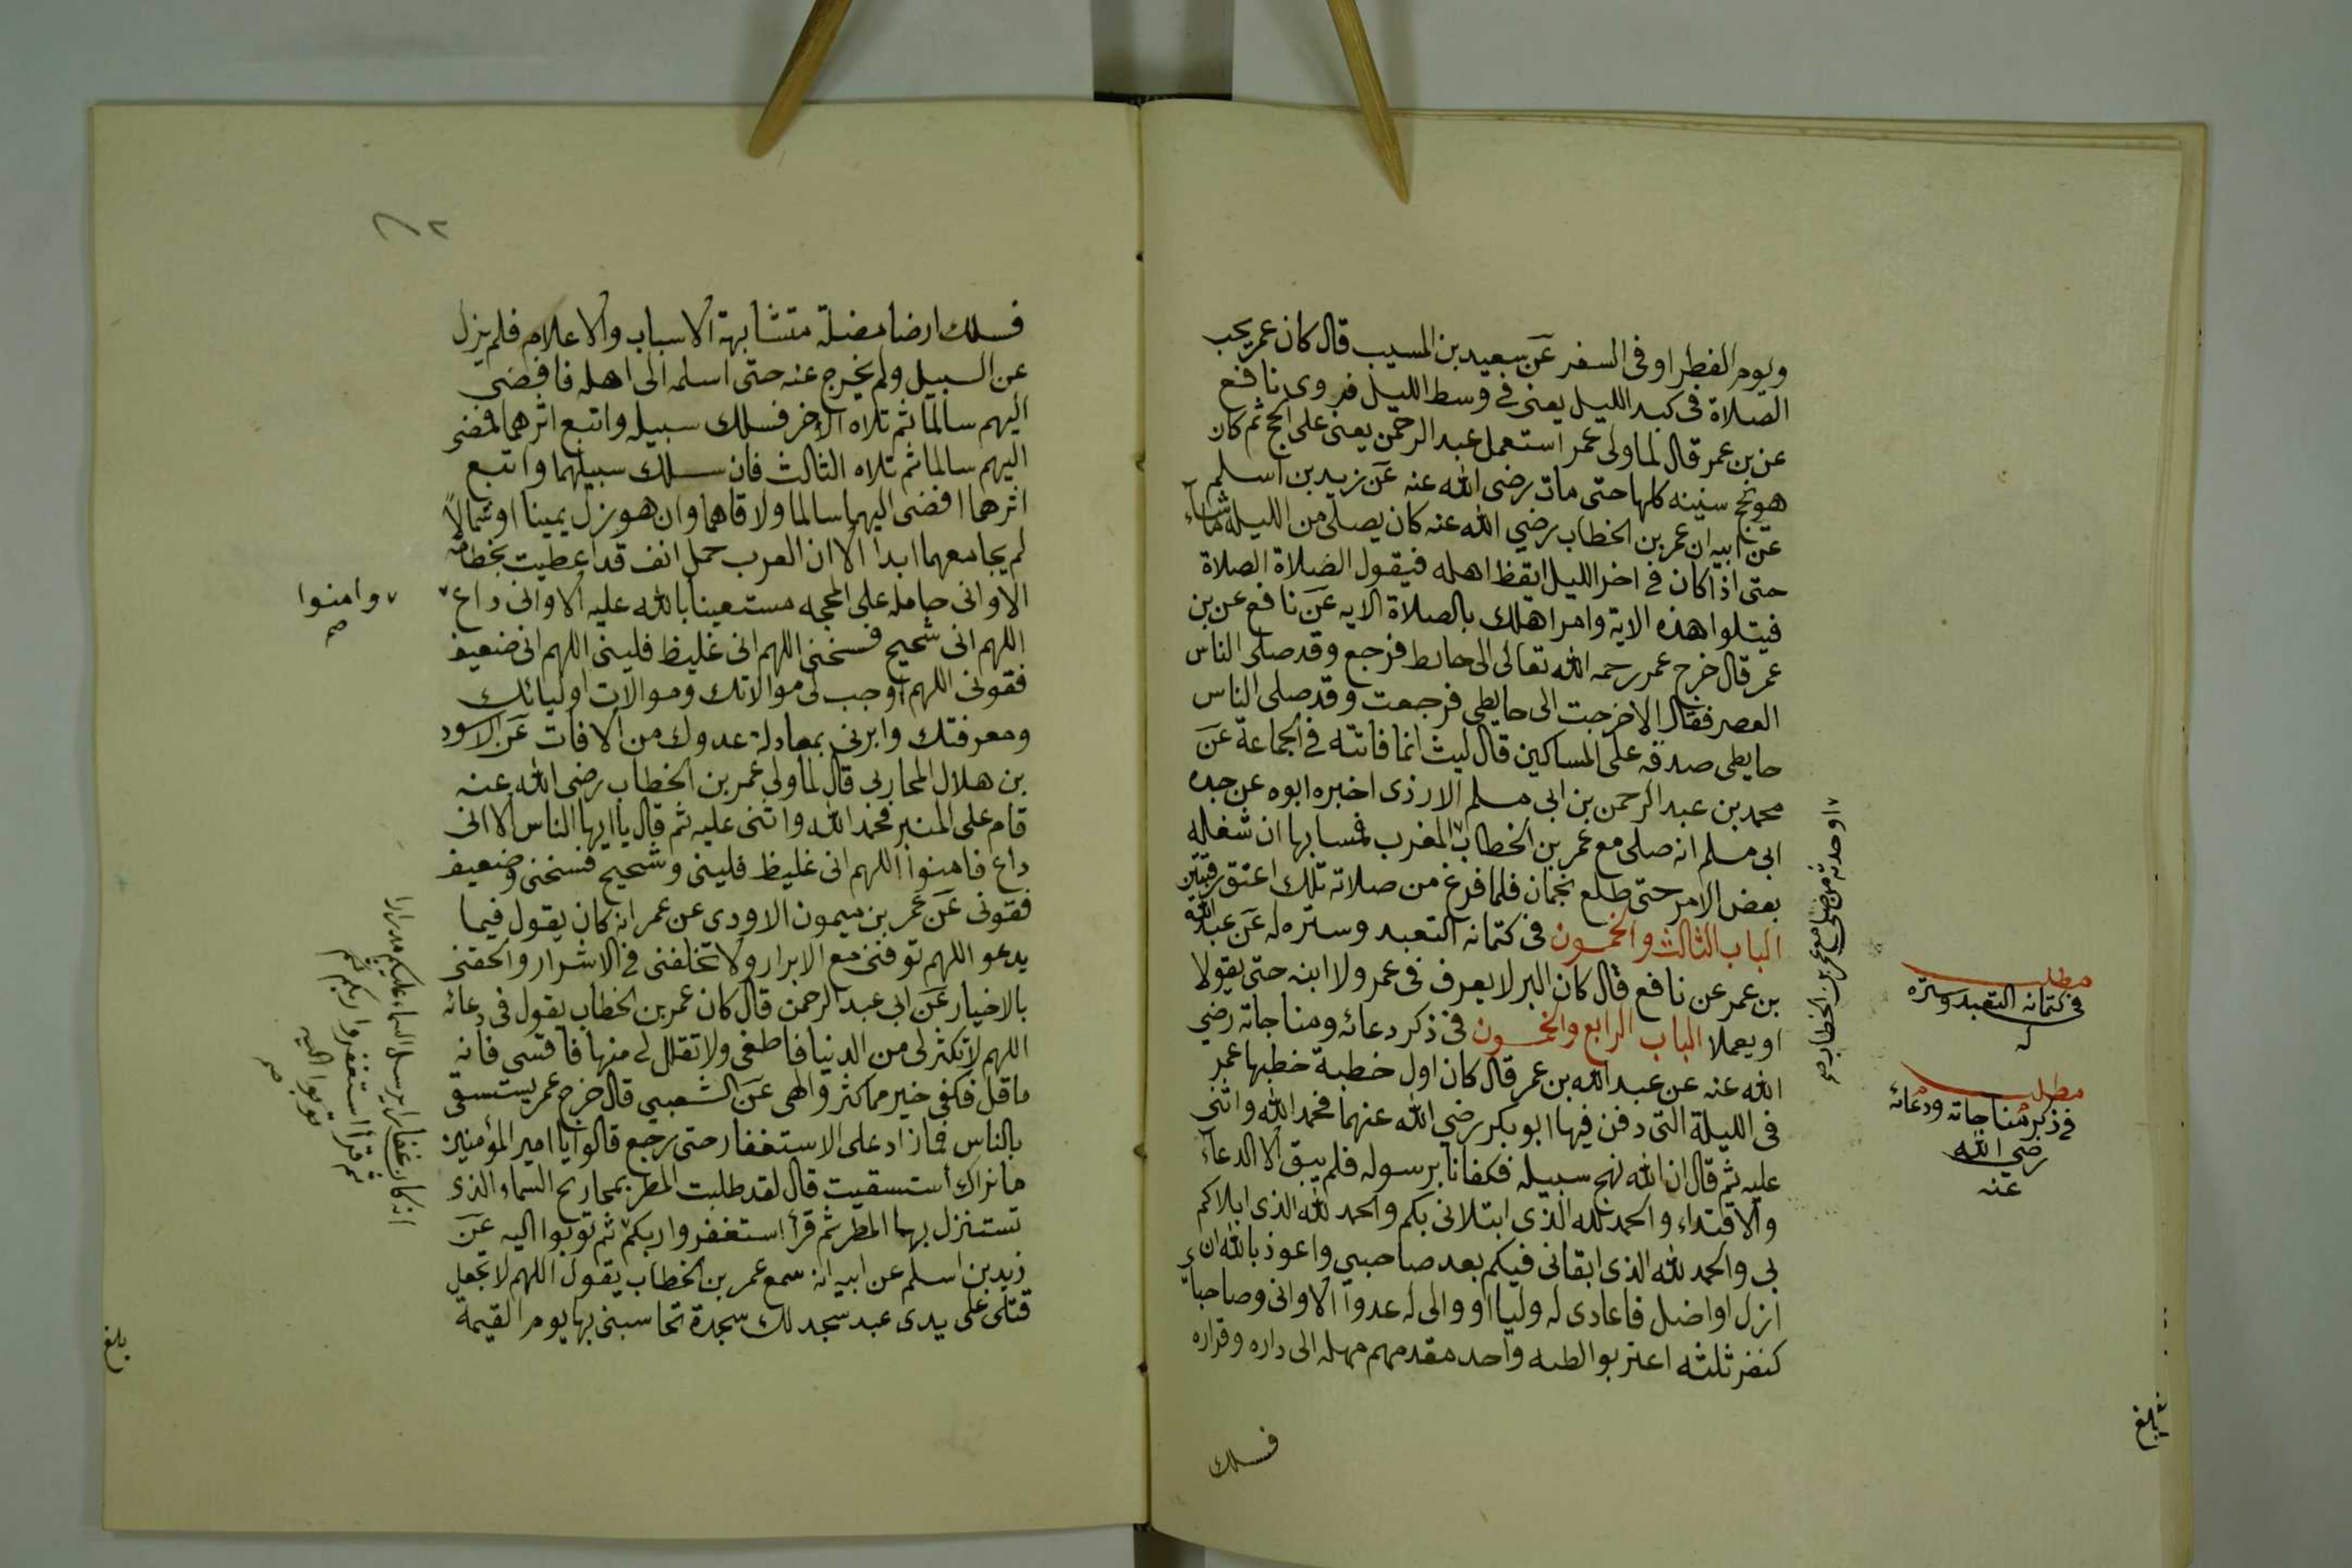 ويوم الفطر او فى السفر عن سعيد بن المسيب قال كان عمر يحب
الصلاة فى كبد الليل يعنى فى وسط الليل فروى نافع
عن بن عمر قال لما ولى عمر استعمل عبد الرحمن يعنى على الحج ثم كان
هو يحج سنينه كلها حتى مات رضى الله عنه عن زيد بن اسلم
عن ابيه ان عمر بن الخطاب رضي الله عنه كان يصلى من الليله ما شاء
حتى اذا كان فى اخر الليل ايقظ اهله فيقول الصلاة الصلاة
فيتلوا هذه الاية وامر اهلك بالصلاة الايه عن نافع عن بن
عمر قال خرج عمر رحمه الله تعالى الى حايط فرجع وقد صلى الناس
العصر فقال الاخرجت الى حايطى فرجعت وقد صلى الناس
حايطى صدقه على المساكين قال ليث انما فاتته فى الجماعة عن
محمد بن عبد الرحمن بن ابى مسلم الازدى اخبره ابوه عن جده
ابى مسلم انه صلى مع عمر بن الخطاب المغرب فمسا بها ان شغله
بعض الامر حتى طلع نجمان فلما فرغ من صلاته تلك اعتق رقبتين
الباب الثالث والخمسون فى كتمانه التعبد وستره له عن عبد الله
بن عمر عن نافع قال كان البر لا يعرف فى عمر ولا ابنه حتى يقولا
او يعملا الباب الرابع والخمسون فى ذكر دعائه ومناجاته رضي
الله عنه عن عبد الله بن عمر قال كان اول خطبة خطبها عمر
فى الليلة التى دفن فيها ابو بكر رضي الله عنهما فحمد الله واثنى
عليه ثم قال ان الله نهج سبيله فكفانا برسوله فلم يبق الا الدعاء
والاقتداء والحمد لله الذى ابتلانى بكم والحمد لله الذى ابلاكم
بي والحمد لله الذى ابقانى فيكم بعد صاحبي واعوذ بالله ان
ازل او اضل فاعادى له وليا او والى له عدوا الا وانى وصاحباي
كنفر ثلثه اغتربوا الطيه واحد مقدمهم مهله الى داره وقراره
فسلك
او حدثه من صلى مع عمر بن الخطاب صح
مطلب
فى كتمانه التعبد وستره
له
مطلب
فى ذكر مناجاته ودعائه
رضي الله
عنه
بلغ
٢
فسلك ارضا مضلة متشابهة الاسباب والاعلام فلم يزل
عن السبيل ولم يخرج عنه حتى اسلمه الى اهله فافضي
اليهم سالما ثم تلاه الاخر فسلك سبيله واتبع اثرهما فافضى
اليهم سالما ثم تلاه الثالث فان سلك سبيلهما واتبع
اثرهما افضى اليهما سالما ولاقاهما وان هو زل يمينا او شمالاً
لم يجامعهما ابدا الا ان العرب جمل انف قد اعطيت بخطامه
الا وانى حامله على المحجه مستعينا بالله عليه الا وانى داع
اللهم انى شحيح فسخنى اللهم انى غليظ فلينى اللهم انى ضعيف
فقونى اللهم اوجب لى موالاتك وموالات اوليائك
ومعرفتك وابرنى بمعادلة عدوك من الافات عن الاسود
بن هلال المحاربى قال لما ولي عمر بن الخطاب رضى الله عنه
قام على المنبر فحمد الله واثنى عليه ثم قال يا ايها الناس الا انى
داع فامنوا اللهم انى غليظ فلينى وشحيح فسخنى وضعيف
فقونى عن عمر بن ميمون الاودى عن عمر انه كان يقول فيما
يدعو اللهم توفنى مع الابرار ولا تخلفنى فى الاشرار والحقنى
بالاخيار عن ابى عبد الرحمن قال كان عمر بن الخطاب يقول فى دعائه
اللهم لا تكثر لى من الدنيا فاطغى ولا تقلل لى منها فاقسى فانه
ما قل فكفى خير مما كثر والهى عن الشعبي قال خرج عمر يستسقى
بالناس فما زاد على الاستغفار حتى رجع قالوا يا امير المؤمنين
ما نراك استسقيت قال لقد طلبت المطر بمجاريح السماء الذى
تستنزل بها المطر ثم قرأ استغفروا ربكم ثم توبوا اليه عن
زيد بن اسلم عن ابيه انه سمع عمر بن الخطاب يقول اللهم لا تجعل
قتلى على يدى عبد سجد لك سجدة تحاسبنى بها يوم القيمة
وامنوا
صح
انه كان غفارا يرسل السماء عليكم مدرارا
ثم قرأ استغفروا ربكم ثم
توبوا اليه
صح
بلغ